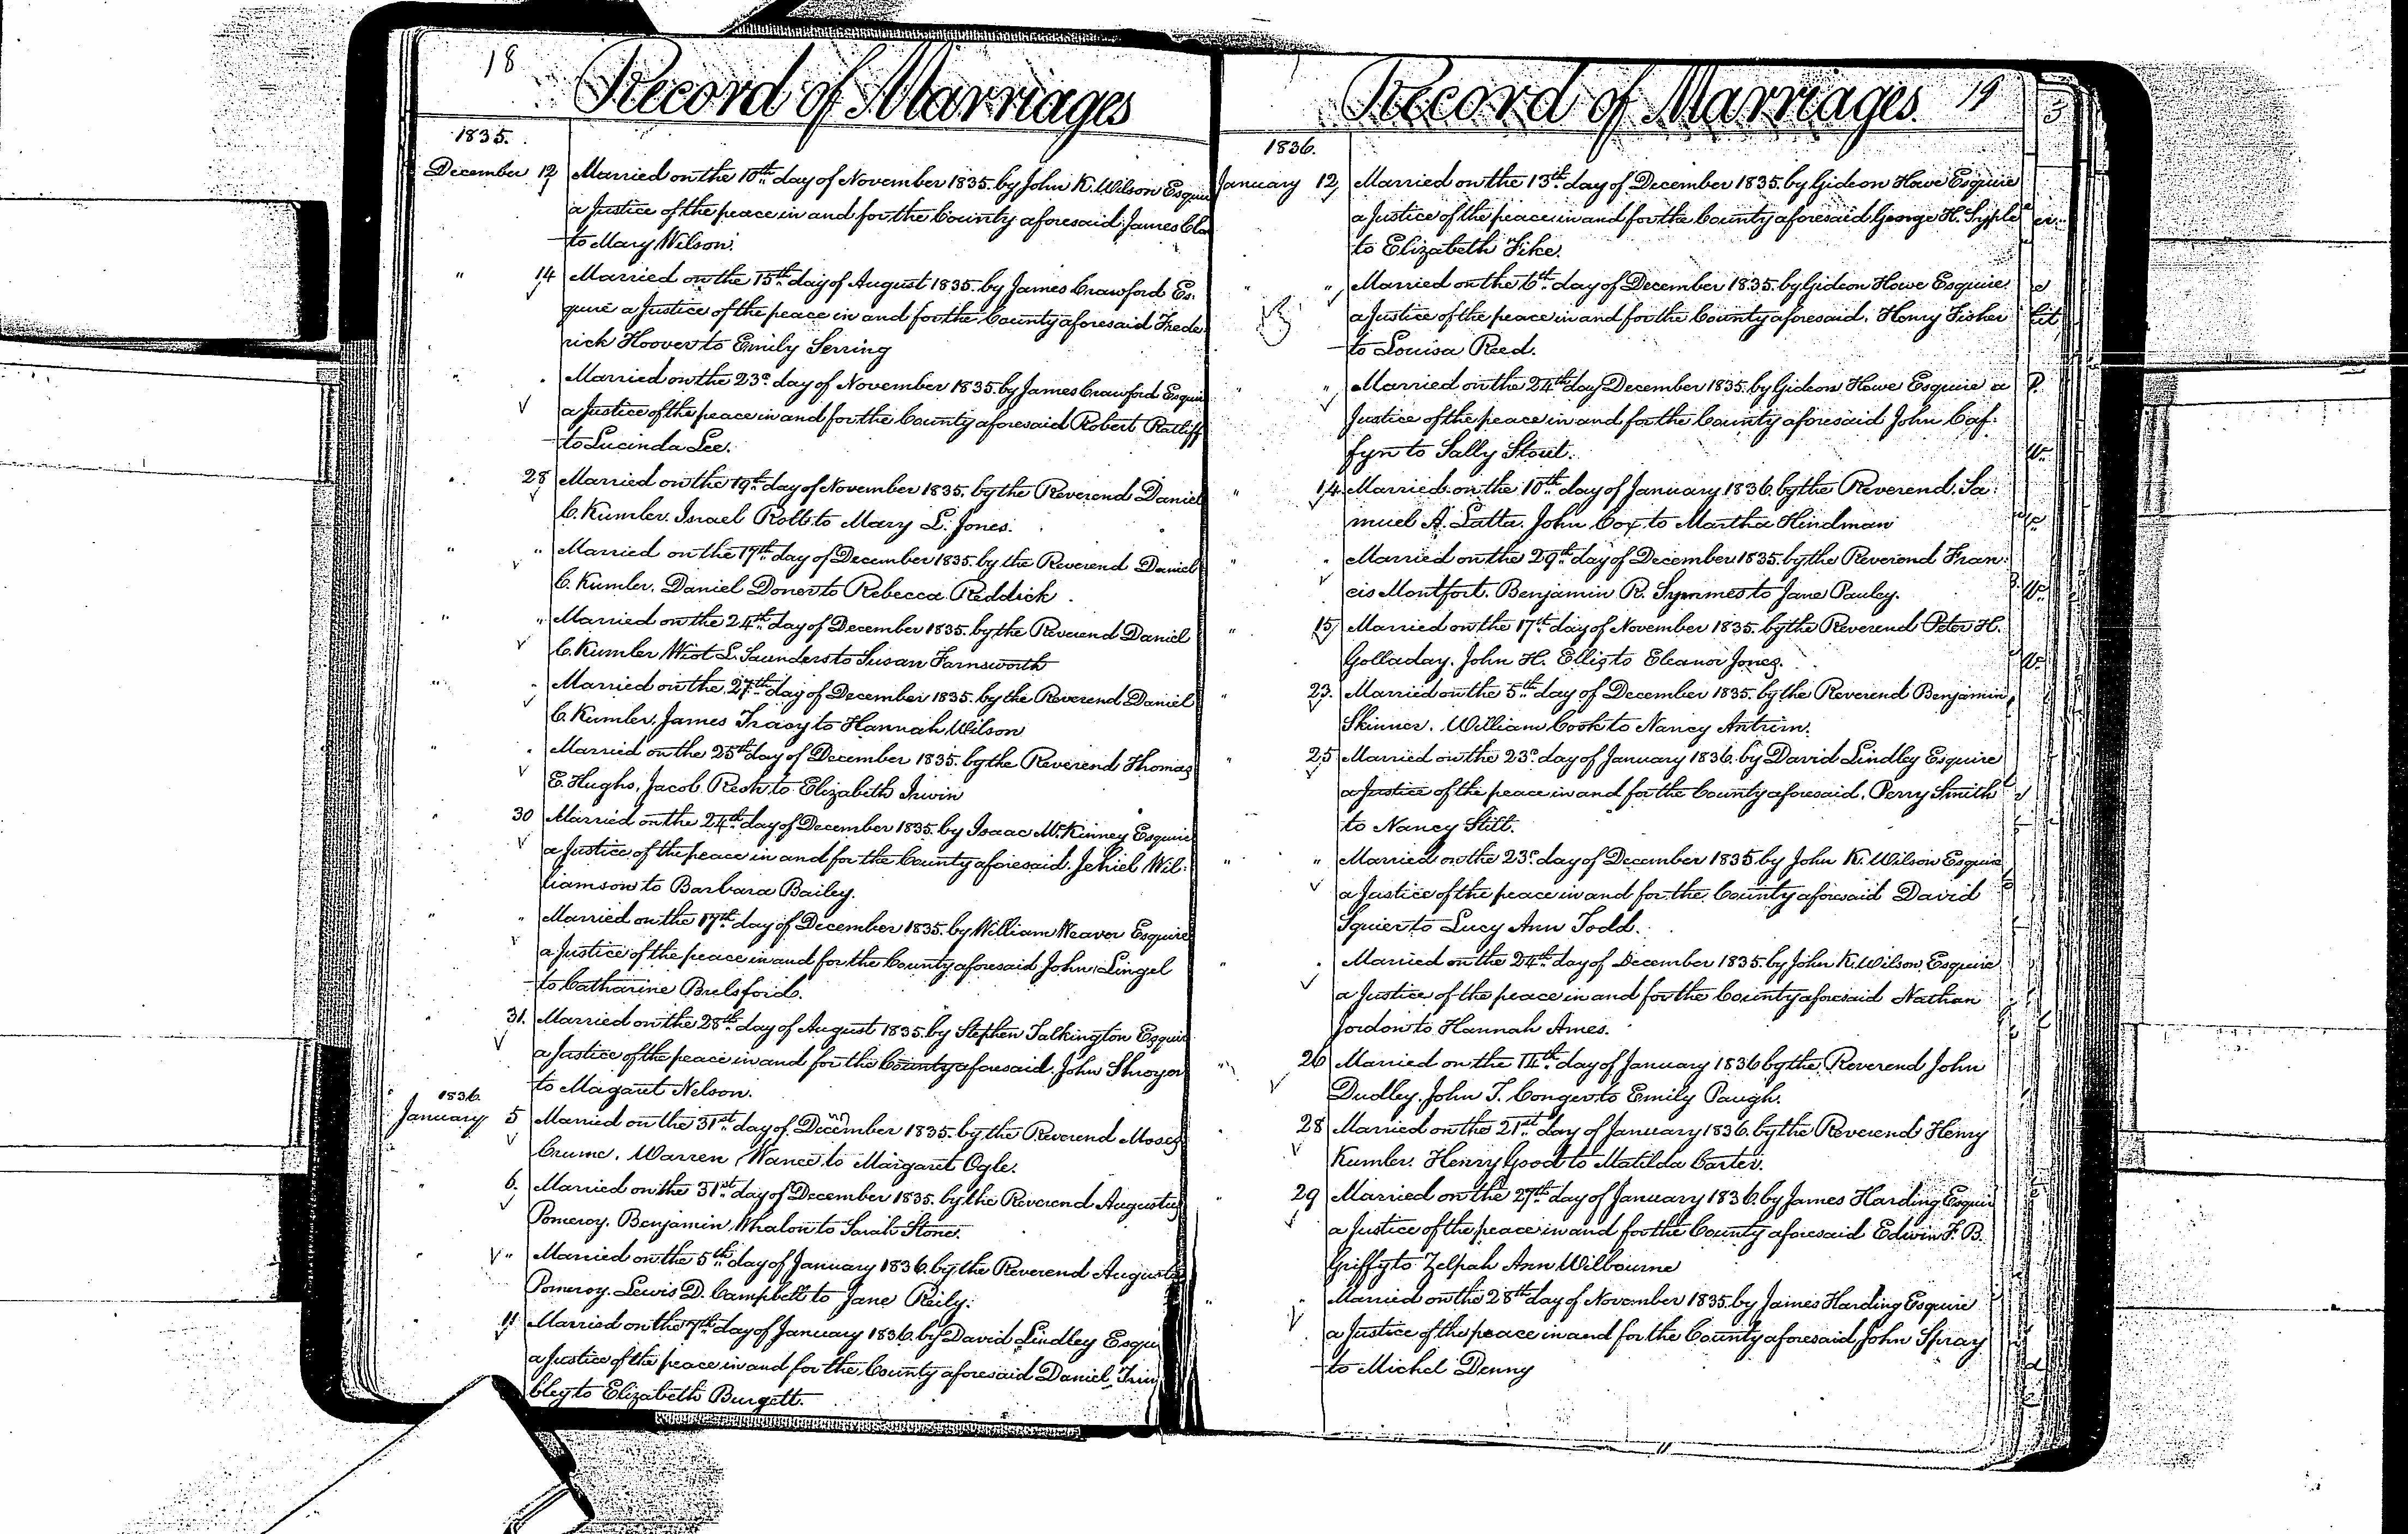 18
Record of Marriages
1835.
December 12 Married on the 10th day of November 1835. by John K. Wilson Esqui
a Justice of the peace in and for the County aforesaid. James Cla
to Mary Wilson.
" 14 Married on the 15th day of August 1835. by James Crawford Es:
quire a Justice of the peace in and for the County aforesaid Frede
rick Hoover to Emily Serring
" " Married on the 23d day of November 1835. by James Crawford Esqui
a Justice of the peace in and for the County aforesaid Robert Ratliff
to Lucinda Lee.
" 28 Married on the 19th day of November 1835. by the Reverend Daniel
C. Kumler. Israel Roll to Mary L. Jones.
" " Married on the 17th day of December 1835. by the Reverend Daniel
C. Kumler. Daniel Doner to Rebecca Reddick.
" " Married on the 24th day of December 1835. by the Reverend Daniel
C. Kumler L. Saunders to Susan Farnsworth
" " Married on the 27th day of December 1835. by the Reverend Daniel
C. Kumler, James Tracy to Hannah Wilson
" " Married on the 25th day of December 1835. by the Reverend Thomas
E. Hughs, Jacob Resh to Elizabeth Irwin
" 30 Married on the 24th day of December 1835. by Isaac McKinney Esquire
a Justice of the peace in and for the County aforesaid. Jehiel Wil:
liamson to Barbara Bailey.
" " Married on the 17th day of December 1835. by William Weaver Esquire
a Justice of the peace in and for the County aforesaid John Lingel
to Catharine Brelsford.
" 31. Married on the 28th day of August 1835. by Stephen Talkington Esqui
a Justice of the peace in and for the County aforesaid. John Shroyer
to Magaret Nelson.
1836.
January 5 Married on the 31st day of December 1835. by the Reverend Moses
Crume. Warren Wance to Margaret Ogle.
" 6. Married on the 31st day of December 1835. by the Reverend Augustus
Pomeroy. Benjamin Whalon to Sarah Stone.
" " Married on the 5th day of January 1836. by the Reverend August
Pomeroy. Lewis D. Campbell to Jane Reily.
" 11 Married on the 7th day of January 1836. by David Lindley Esqui
a Justice of the peace in and for the County aforesaid Daniel Trim
bley to Elizabeth Burgett.
Record of Marriages. 19
3
1836.
January 12, Married on the 13th day of December 1835. by Gideon Howe Esquire
a Justice of the peace in and for the County aforesaid George H. Syple
to Elizabeth Fike.
" " Married on the 6th day of December 1835. by Gideon Howe Esquire
a Justice of the peace in and for the County aforesaid. Henry Fisher
to Louisa Reed.
" " Married on the 24th day December 1835. by Gideon Howe Esquire a
Justice of the peace in and for the County aforesaid John Caf:
fyn to Sally Stout.
" 14 Married on the 10th day of January 1836. by the Reverend. Sa:
muel A. Latta. John Cox to Martha Hindman
" " Married on the 29th day of December 1835. by the Reverend Fran:
cis Montfort. Benjamin R. Symmes to Jane Pauley.
" 15 Married on the 17th day of November 1835. by the Reverend Peter H.
Golladay. John H. Ellis to Eleanor Jones.
" 23. Married on the 5th day of December 1835. by the Reverend Benjamin
Skinner. William Cook to Nancy Antrim.
" 25 Married on the 23d day of January 1836. by David Lindley Esquire
a Justice of the peace in and for the County aforesaid. Perry Smith
to Nancy Still.
" " Married on the 23d day of December 1835 by John K. Wilson Esquire
a Justice of the peace in and for the County aforesaid David
Squier to Lucy Ann Todd.
" " Married on the 24th day of December 1835. by John K. Wilson, Esquire
a Justice of the peace in and for the County aforesaid Nathan
Jordon to Hannah Ames.
" 26 Married on the 14th day of January 1836 by the Reverend John
Dudley. John T. Conger to Emily Paugh.
" 28 Married on the 21st day of January 1836. by the Reverend Henry
Kumler. Henry Good to Matilda Carter.
" 29 Married on the 27th day of January 1836. by James Harding Esqui
a Justice of the peace in and for the County aforesaid Edwin F. B.
Griffy to Zelpah Ann Wilbourne
" " Married on the 28th day of November 1835. by James Harding Esquire
a Justice of the peace in and for the County aforesaid John Spray
to Michel Denny